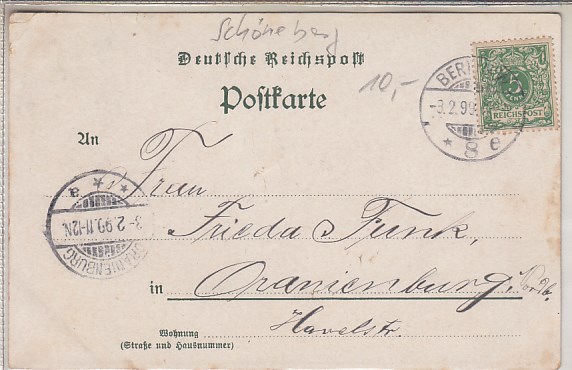 Schöneberg
Deutsche Reichspost
Postkarte
10,-
5
REICHSPOST
-3.2.99.
* 8 e
An
Frau
Frieda Funk,
in Oranienburg, Nordb.
Havelstr.
Wohnung
(Straße und Hausnummer)
3-2.99.11-12N.